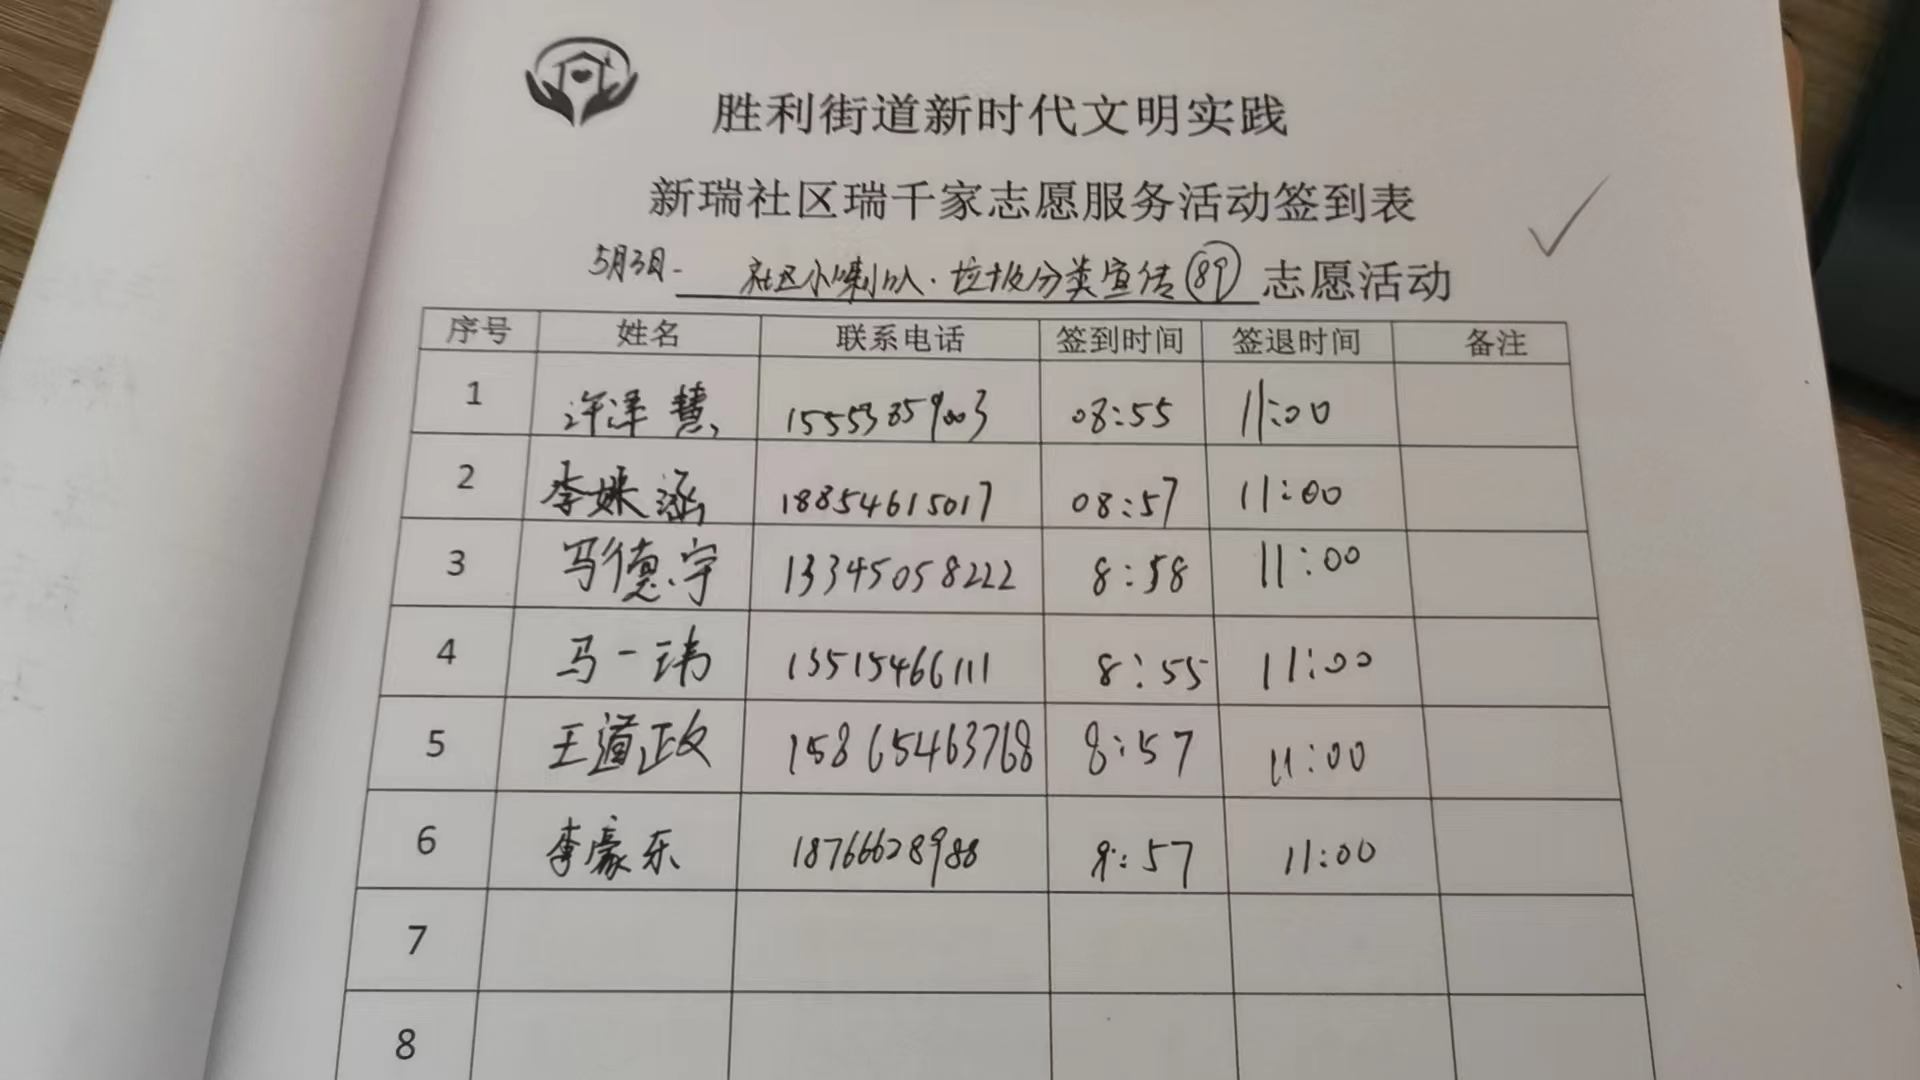 胜利街道新时代文明实践
新瑞社区瑞千家志愿服务活动签到表
5月3日. 社区小喇叭.垃圾分类宣传 89 志愿活动
序号 姓名 联系电话 签到时间 签退时间 备注
1 许泽慧 15553859003 08:55 11:00
2 李姝涵 18854615017 08:57 11:00
3 马德宇 13345058222 8:58 11:00
4 马一玮 13515466111 8:55 11:00
5 王道政 15865463768 8:57 11:00
6 李豪东 18766628988 :57 11:00
7
8